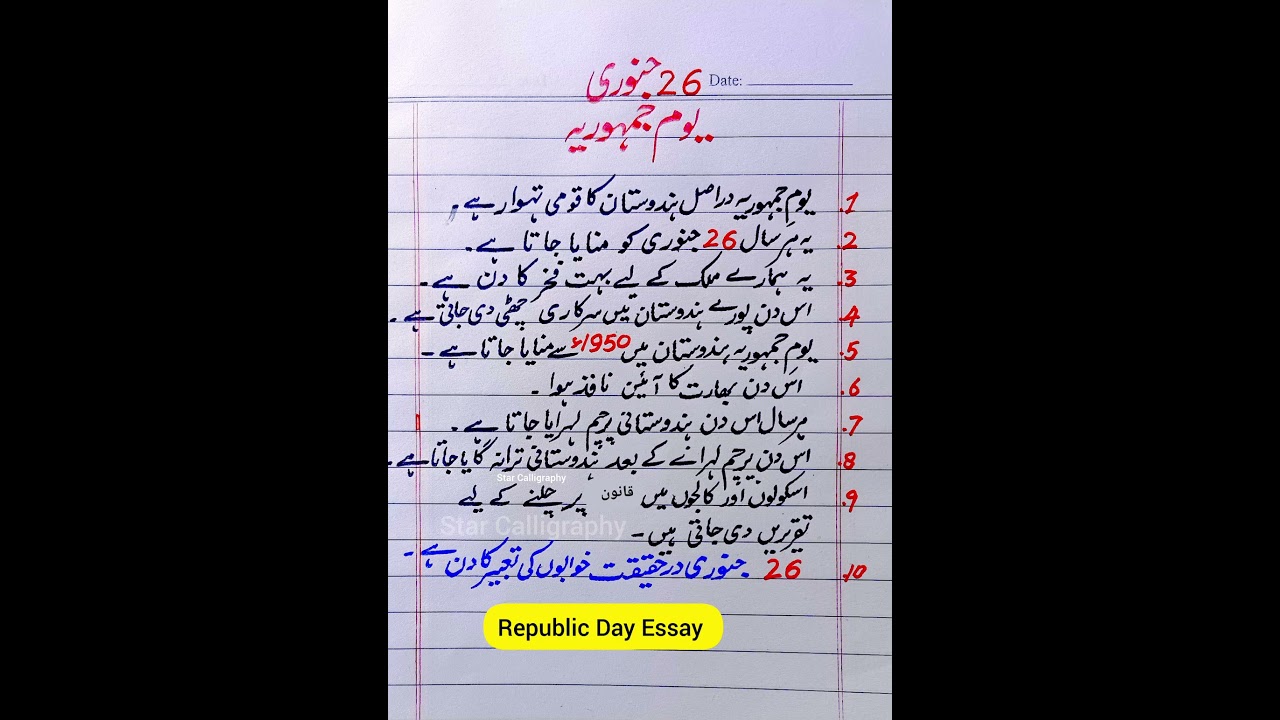 26 جنوری
Date:
یوم جمہوریہ
1. یومِ جمہوریہ دراصل ہندوستان کا قومی تہوار ہے۔
2. یہ ہر سال 26 جنوری کو منایا جاتا ہے۔
3. یہ ہمارے ملک کے لیے بہت فخر کا دن ہے۔
4. اس دن پورے ہندوستان میں سرکاری چھٹی دی جاتی ہے۔
5. یومِ جمہوریہ ہندوستان میں 1950ء سے منایا جاتا ہے۔
6. اس دن بھارت کا آئین نافذ ہوا۔
7. ہر سال اس دن ہندوستانی پرچم لہرایا جاتا ہے۔
8. اس دن پرچم لہرانے کے بعد ہندوستانی ترانہ گایا جاتا ہے۔
Star Calligraphy
9. اسکولوں اور کالجوں میں قانون پر چلنے کے لیے
Star Calligraphy
تقریریں دی جاتی ہیں۔
10. 26 جنوری درحقیقت خوابوں کی تعبیر کا دن ہے۔
Republic Day Essay